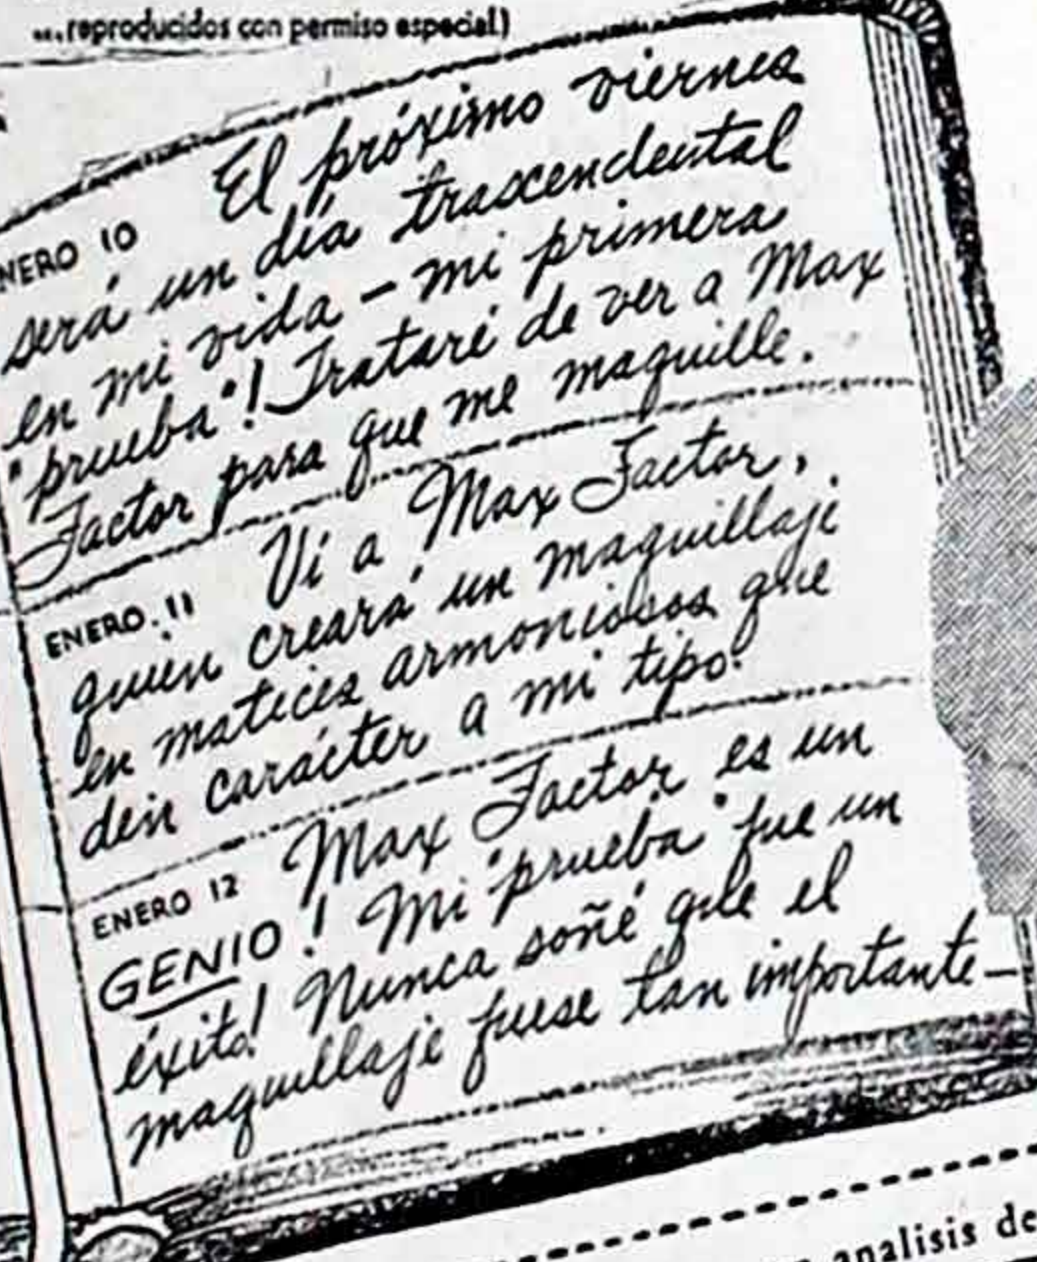 ...reproducidos con permiso especial)
NERO 10 El próximo viernes
será un día trascendental
en mi vida – mi primera
"prueba"! Trataré de ver a Max
Factor para que me maquille.
ENERO. 11 Vi a Max Factor,
quien creará un maquillaje
en matices armoniosos que
den carácter a mi tipo.
ENERO 12 Max Factor es un
GENIO! Mi "prueba" fue un
éxito! Nunca soñé que el
maquillaje fuese tan importante –
analisis de